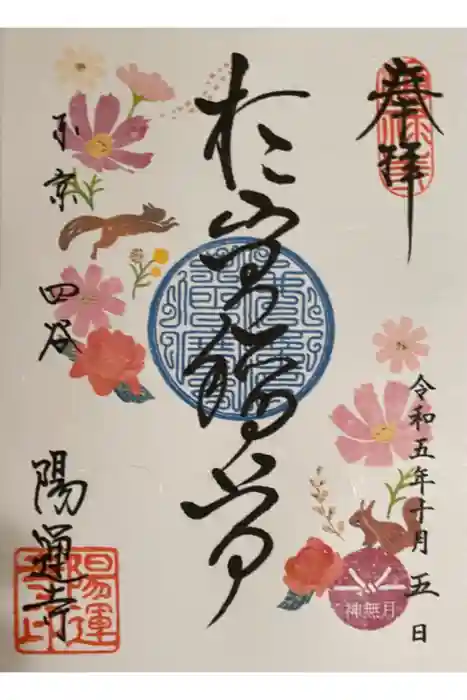 奉拝
令和五年十月五日
神無月
於岩稲荷
東京 四谷
陽運寺